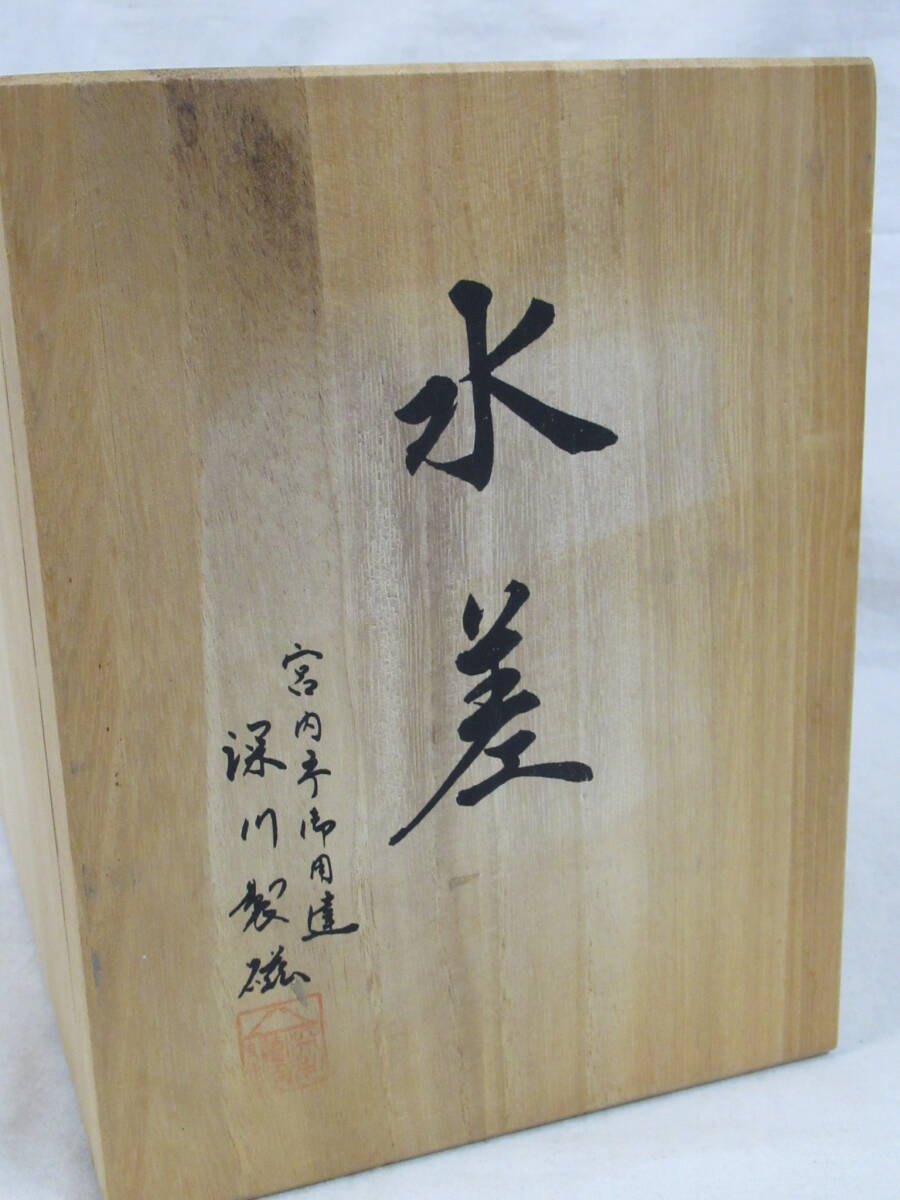 水差
宮内庁御用達
深川製磁